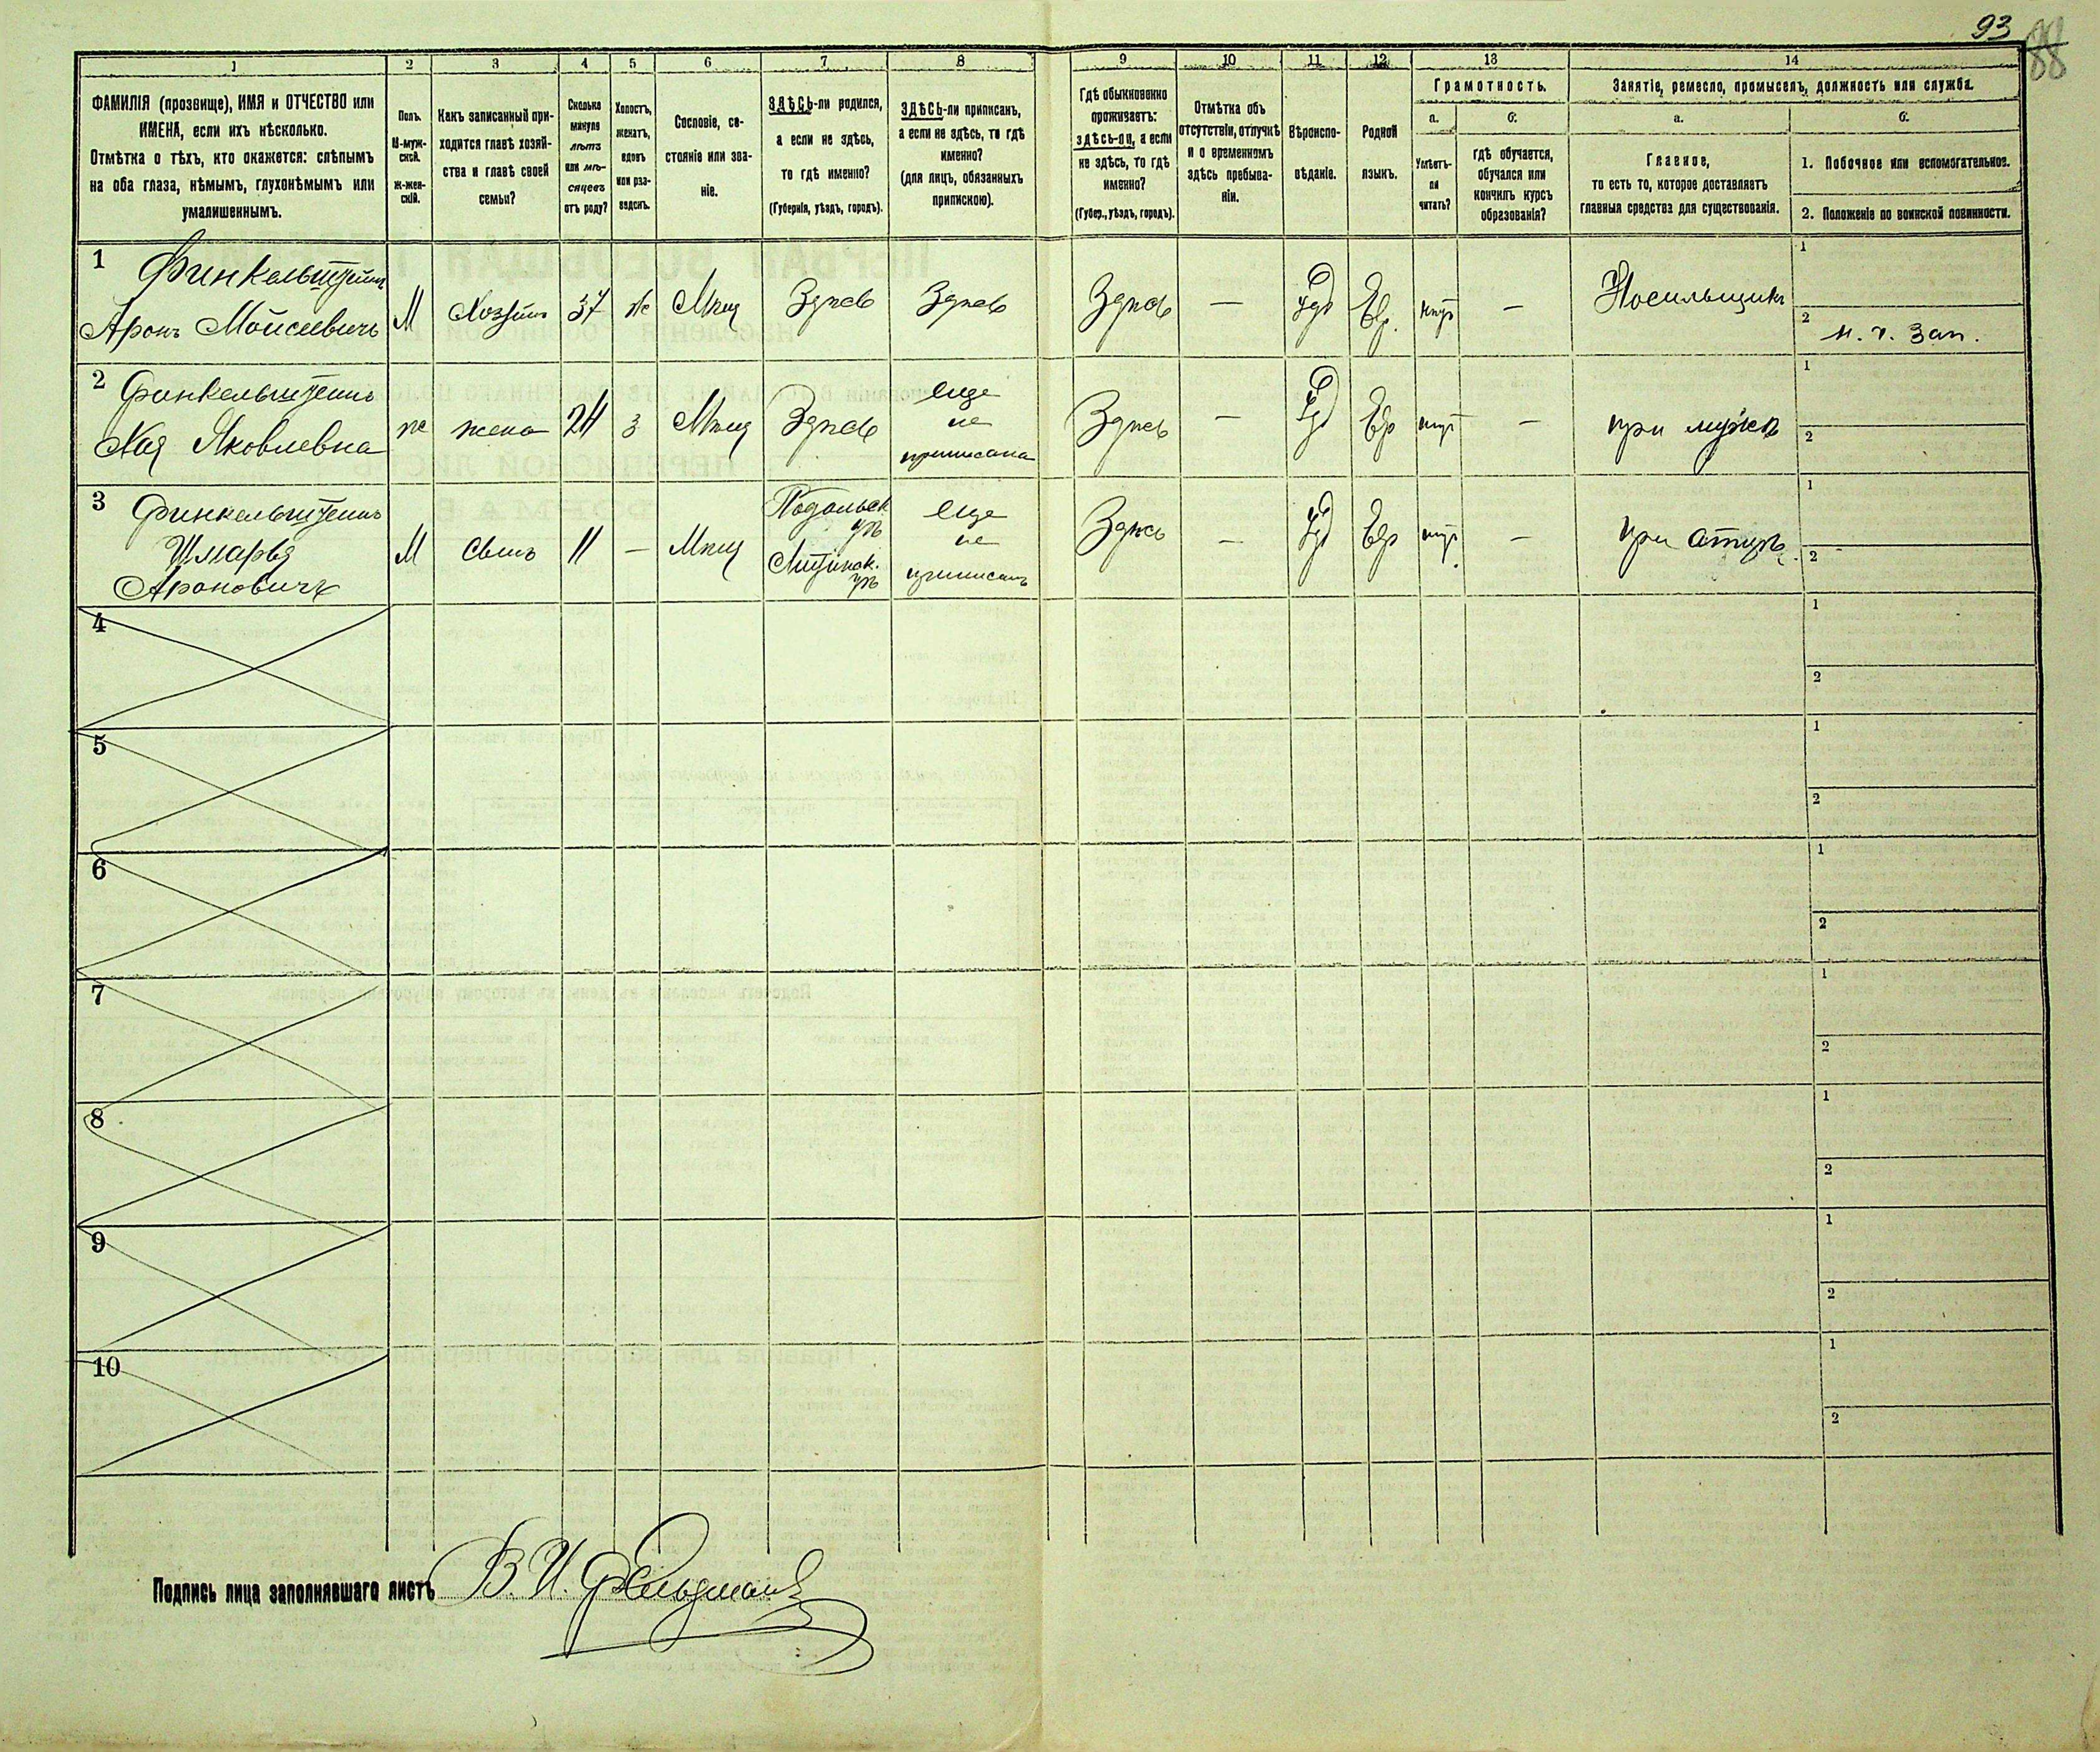 93
88
1 2 3 4 5 6 7 8 9 10 11 12 13 14
ФАМИЛІЯ (прозвище), ИМЯ и ОТЧЕСТВО или
ИМЕНА, если ихъ нѣсколько.
Отмѣтка о тѣхъ, кто окажется: слѣпымъ
на оба глаза, нѣмымъ, глухонѣмымъ или
умалишеннымъ.
Полъ.
М-муж-
ской.
ж-жен-
скій.
Какъ записанный при-
ходится главѣ хозяй-
ства и главѣ своей
семьи?
Сколько
минуло
лѣтъ
или мѣ-
сяцевъ
отъ роду?
Холостъ,
женатъ,
вдовъ
или раз-
веденъ.
Сословіе, со-
стояніе или зва-
ніе.
ЗДѢСЬ-ли родился,
а если не здѣсь,
то гдѣ именно?
(Губернія, уѣздъ, городъ).
ЗДѢСЬ-ли приписанъ,
а если не здѣсь, то гдѣ
именно?
(для лицъ, обязанныхъ
припискою).
Гдѣ обыкновенно
проживаетъ:
здѣсь-ли, а если
не здѣсь, то гдѣ
именно?
(Губер., уѣздъ, городъ).
Отмѣтка объ
отсутствіи, отлучкѣ
и о временномъ
здѣсь пребыва-
ніи.
Вѣроиспо-
вѣданіе.
Родной
языкъ.
Грамотность.
а.
Умѣетъ-
ли
читать?
б.
гдѣ обучается,
обучался или
кончилъ курсъ
образованія?
Занятіе, ремесло, промыселъ, должность или служба.
а.
Главное,
то есть то, которое доставляетъ
главныя средства для существованія.
б.
1. Побочное или вспомогательное.
2. Положеніе по воинской повинности.
1 Финкельштейнъ
Аронъ Мойсеевичъ
М Хозяинъ 37 ж Мѣщ Здѣсь Здѣсь Здѣсь — Іуд Евр. — Носильщикъ
1
2 н. ч. зап.
2 Финкельштейнъ
Хая Яковлевна
ж жена 24 з Мѣщ Здѣсь
еще
не
приписана
Здѣсь — Іуд Евр — при мужѣ
1
2
3 Финкельштейнъ
Шмарья
Ароновичъ
М Сынъ 11 — Мѣщ
Подольск
гу
Литинск.
уѣ
еще
не
приписанъ
Здѣсь — Іуд Евр — при отцѣ.
1
2
4 1
2
5 1
2
6 1
2
7 1
2
8 1
2
9 1
2
10 1
2
Подпись лица заполнявшаго листъ В. И. Фельдманъ